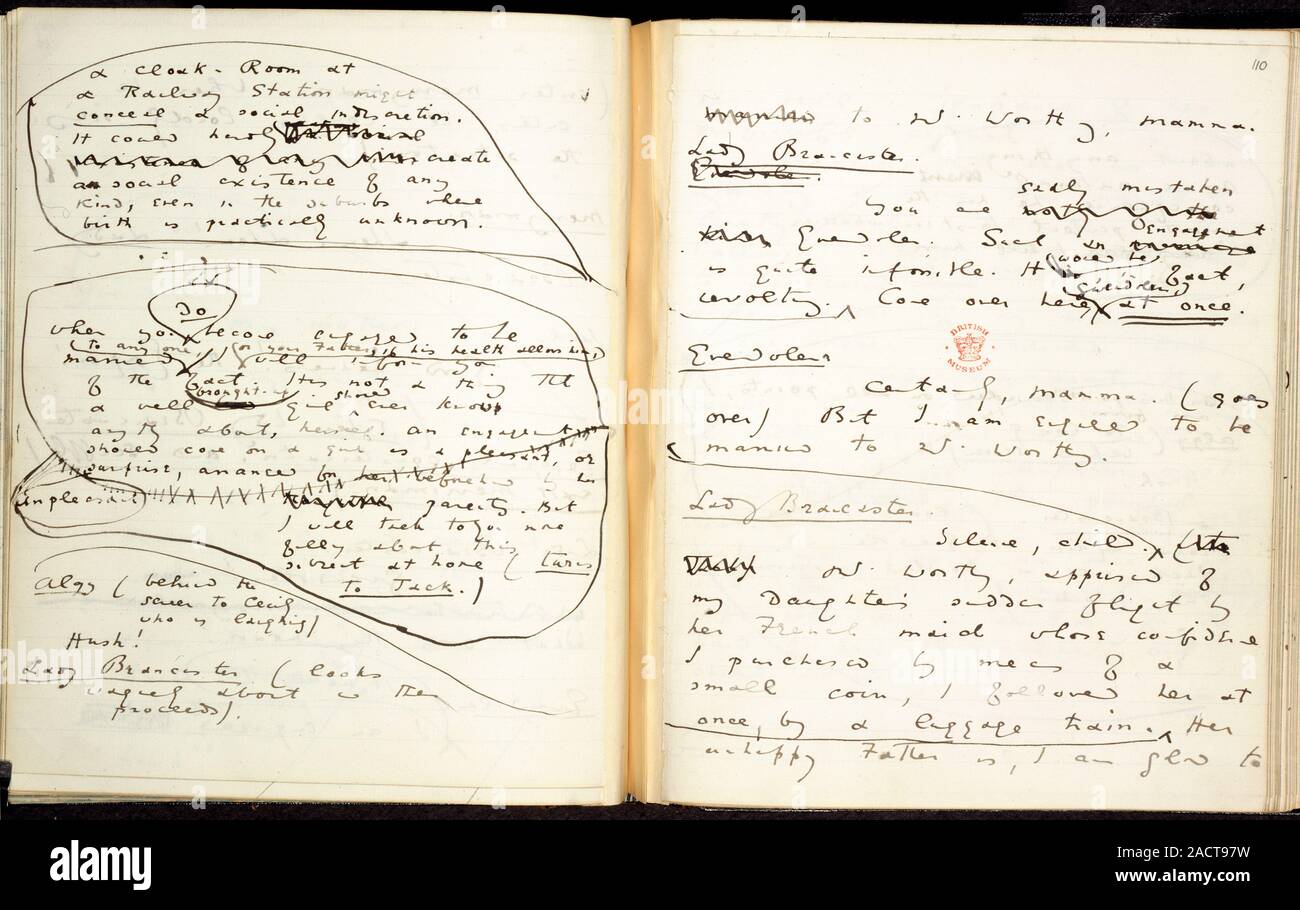 a cloak-Room at
a Railway Station might
conceal a social indiscretion.
It could hardly
create
a social existence of any
kind, even in the suburbs where
birth is practically unknown.
Do
when you become engaged to be
(to any one, or your Father, if his health allows him,)
married I will inform you
of the fact. It is not a thing that
brought-up should
a well girl ever know
anything about, herself. An engagement
should come on a girl as a pleasant, or
surprise, arranged for her beforehand by her
unpleasant
parents. But
I will talk to you more
fully about this
subject at home (turns
to Jack.)
Algy (behind the
screen to Cecily
who is laughing)
Hush!
Lady Brancaster (looks
vaguely about and then
proceeds).
110
to Mr. Worthy, mamma.
Lady Brancaster.
Gwendolen.
sadly mistaken
You are
Engagement
Gwendolen. Such an
would be
is quite impossible. It fact,
Gwendolen,
revolting. Come over here, at once.
BRITISH
MUSEUM
Gwendolen
Certainly, mamma. (goes
over) But I am engaged to be
married to Mr. Worthy.
Lady Brancaster.
Silence, child.
Mr. Worthy, apprised of
my Daughter's sudden flight by
her French maid whose confidence
I purchased by means of a
small coin, I followed her at
once, by a luggage train. Her
unhappy Father is, I am glad to
alamy
Image ID: 2ACT97W
www.alamy.com